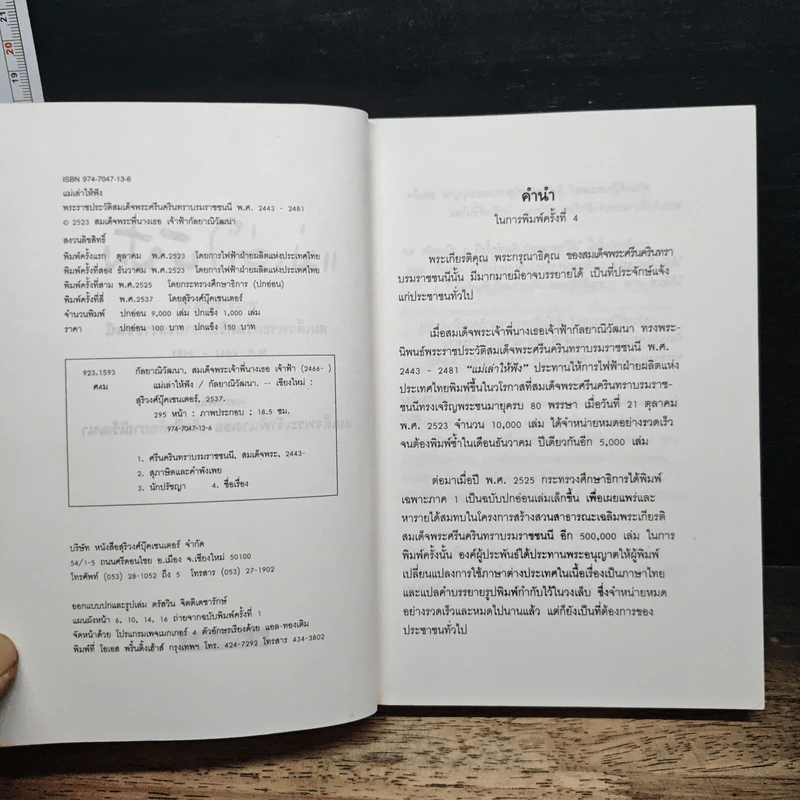 21
20
19
ISBN 974-7047-13-6
แม่เล่าให้ฟัง
พระราชประวัติสมเด็จพระศรีนครินทราบรมราชชนนี พ.ศ. 2443 - 2481
© 2523 สมเด็จพระพี่นางเธอ เจ้าฟ้ากัลยาณิวัฒนา
สงวนลิขสิทธิ์
พิมพ์ครั้งแรก ตุลาคม พ.ศ.2523 โดยการไฟฟ้าฝ่ายผลิตแห่งประเทศไทย
พิมพ์ครั้งที่สอง ธันวาคม พ.ศ.2523 โดยการไฟฟ้าฝ่ายผลิตแห่งประเทศไทย
พิมพ์ครั้งที่สาม พ.ศ.2525 โดยกระทรวงศึกษาธิการ (ปกอ่อน)
พิมพ์ครั้งที่สี่ พ.ศ.2537 โดยสุริวงศ์บุ๊คเซนเตอร์
จำนวนพิมพ์ ปกอ่อน 9,000 เล่ม ปกแข็ง 1,000 เล่ม
ราคา ปกอ่อน 100 บาท ปกแข็ง 150 บาท
923.1593 กัลยาณิวัฒนา, สมเด็จพระเจ้าพี่นางเธอ เจ้าฟ้า (2466- )
ศ4ม แม่เล่าให้ฟัง / กัลยาณิวัฒนา. -- เชียงใหม่ :
สุริวงศ์บุ๊คเซนเตอร์, 2537.
295 หน้า : ภาพประกอบ : 18.5 ซม.
974-7047-13-6
1. ศรีนครินทราบรมราชชนนี, สมเด็จพระ, 2443-
2. สุภาษิตและคำพังเพย
3. นักปรัชญา 4. ชื่อเรื่อง
บริษัท หนังสือสุริวงศ์บุ๊คเซนเตอร์ จำกัด
54/1-5 ถนนศรีดอนไชย อ.เมือง จ.เชียงใหม่ 50100
โทรศัพท์ (053) 28-1052 ถึง 5 โทรสาร (053) 27-1902
ออกแบบปกและรูปเล่ม ตรัสวิน จิตติเดชารักษ์
แผนผังหน้า 6, 10, 14, 16 ถ่ายจากฉบับพิมพ์ครั้งที่ 1
จัดหน้าด้วย โปรแกรมเพจเมกเกอร์ 4 ตัวอักษรเรียงด้วย แอล-ทองเติม
พิมพ์ที่ โอเอส พริ้นติ้งเฮ้าส์ กรุงเทพฯ โทร. 424-7292 โทรสาร 434-3802
คำนำ
ในการพิมพ์ครั้งที่ 4
พระเกียรติคุณ พระกรุณาธิคุณ ของสมเด็จพระศรีนครินทรา
บรมราชชนนีนั้น มีมากมายมิอาจบรรยายได้ เป็นที่ประจักษ์แจ้ง
แก่ประชาชนทั่วไป
เมื่อสมเด็จพระเจ้าพี่นางเธอเจ้าฟ้ากัลยาณิวัฒนา ทรงพระ-
นิพนธ์พระราชประวัติสมเด็จพระศรีนครินทราบรมราชชนนี พ.ศ.
2443 - 2481 "แม่เล่าให้ฟัง" ประทานให้การไฟฟ้าฝ่ายผลิตแห่ง
ประเทศไทยพิมพ์ขึ้นในวโรกาสที่สมเด็จพระศรีนครินทราบรมราช-
ชนนีทรงเจริญพระชนมายุครบ 80 พรรษา เมื่อวันที่ 21 ตุลาคม
พ.ศ. 2523 จำนวน 10,000 เล่ม ได้จำหน่ายหมดอย่างรวดเร็ว
จนต้องพิมพ์ซ้ำในเดือนธันวาคม ปีเดียวกันอีก 5,000 เล่ม
ต่อมาเมื่อปี พ.ศ. 2525 กระทรวงศึกษาธิการได้พิมพ์
เฉพาะภาค 1 เป็นฉบับปกอ่อนเล่มเล็กขึ้น เพื่อเผยแพร่และ
หารายได้สมทบในโครงการสร้างสวนสาธารณะเฉลิมพระเกียรติ
สมเด็จพระศรีนครินทราบรมราชชนนี อีก 500,000 เล่ม ในการ
พิมพ์ครั้งนั้น องค์ผู้ประพันธ์ได้ประทานพระอนุญาตให้ผู้พิมพ์
เปลี่ยนแปลงการใช้ภาษาต่างประเทศในเนื้อเรื่องเป็นภาษาไทย
และแปลคำบรรยายรูปพิมพ์กำกับไว้ในวงเล็บ ซึ่งจำหน่ายหมด
อย่างรวดเร็วและหมดไปนานแล้ว แต่ก็ยังเป็นที่ต้องการของ
ประชาชนทั่วไป